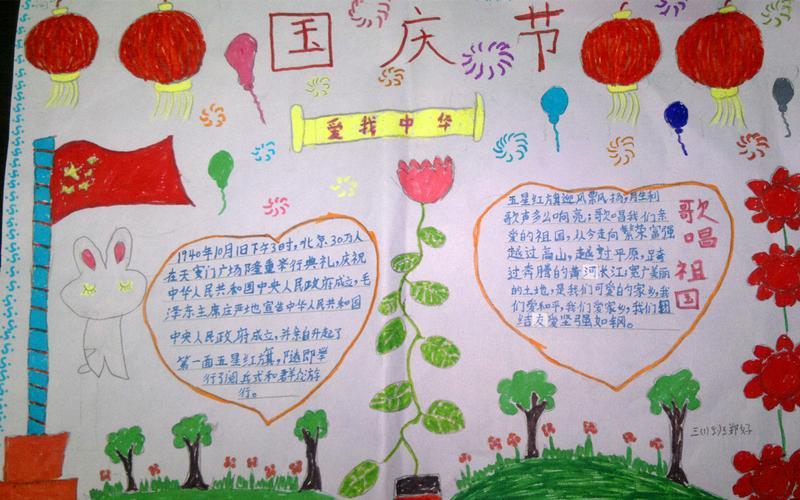 国庆节
爱我中华
1940年10月1日下午3时,北京30万人
在天安门广场隆重举行典礼,庆祝
中华人民共和国中央人民政府成立,毛
泽东主席庄严地宣告中华人民共和国
中央人民政府成立,并亲自升起了
第一面五星红旗,随即举
行了阅兵式和群众游
行。
五星红旗迎风飘扬,胜利
歌声多么响亮;歌唱我们亲
爱的祖国,从今走向繁荣富强
越过高山,越过平原,跨
过奔腾的黄河长江;宽广美丽
的土地,是我们可爱的家乡,我
们爱和平,我们爱家乡,我们团
结友爱坚强如钢。
歌唱祖国
三(1)班郑好